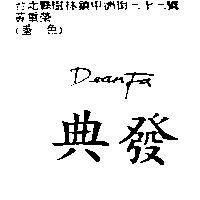 台北縣樹林鎮中洲街二十二號
黃重榮
(墨 色)
Dean Fa
典發